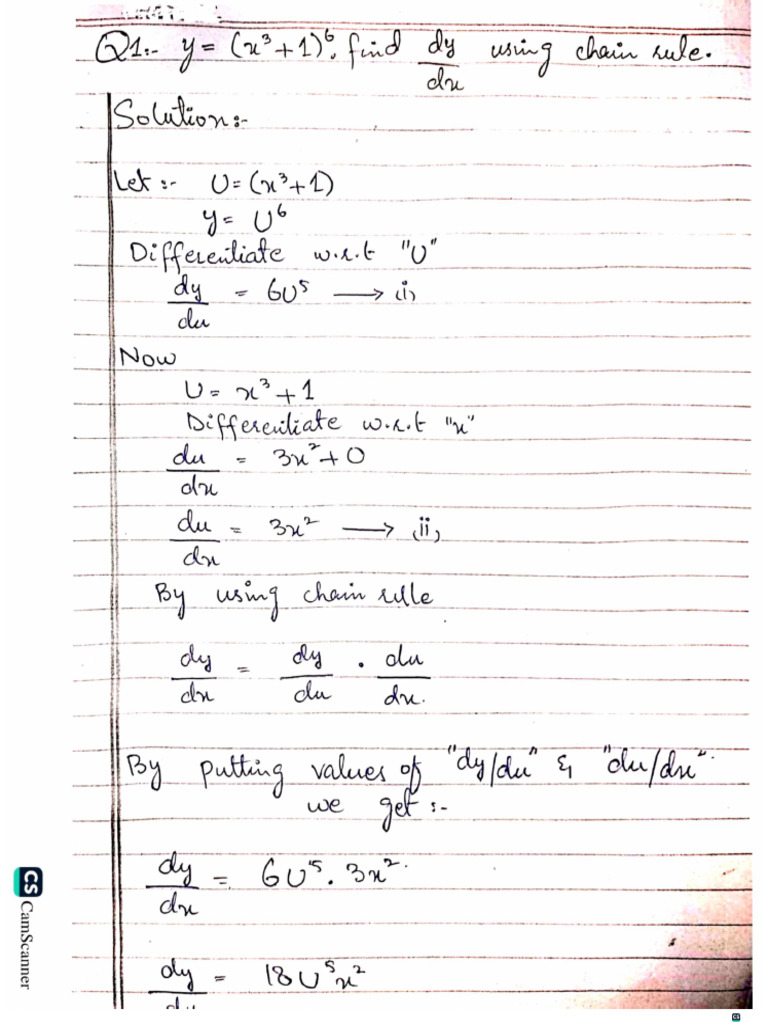 Q1:- y = (x³+1)⁶, find dy/dx using chain rule.
Solution:-
Let :- U = (x³+1)
y = U⁶
Differentiate w.r.t "U"
dy/du = 6U⁵ → (i)
Now
U = x³+1
Differentiate w.r.t "x"
du/dx = 3x²+0
du/dx = 3x² → (ii)
By using chain rule
dy/dx = dy/du . du/dx.
By putting values of "dy/du" & "du/dx"
we get :-
dy/dx = 6U⁵. 3x².
dy/dx = 18U⁵x²
CS CamScanner